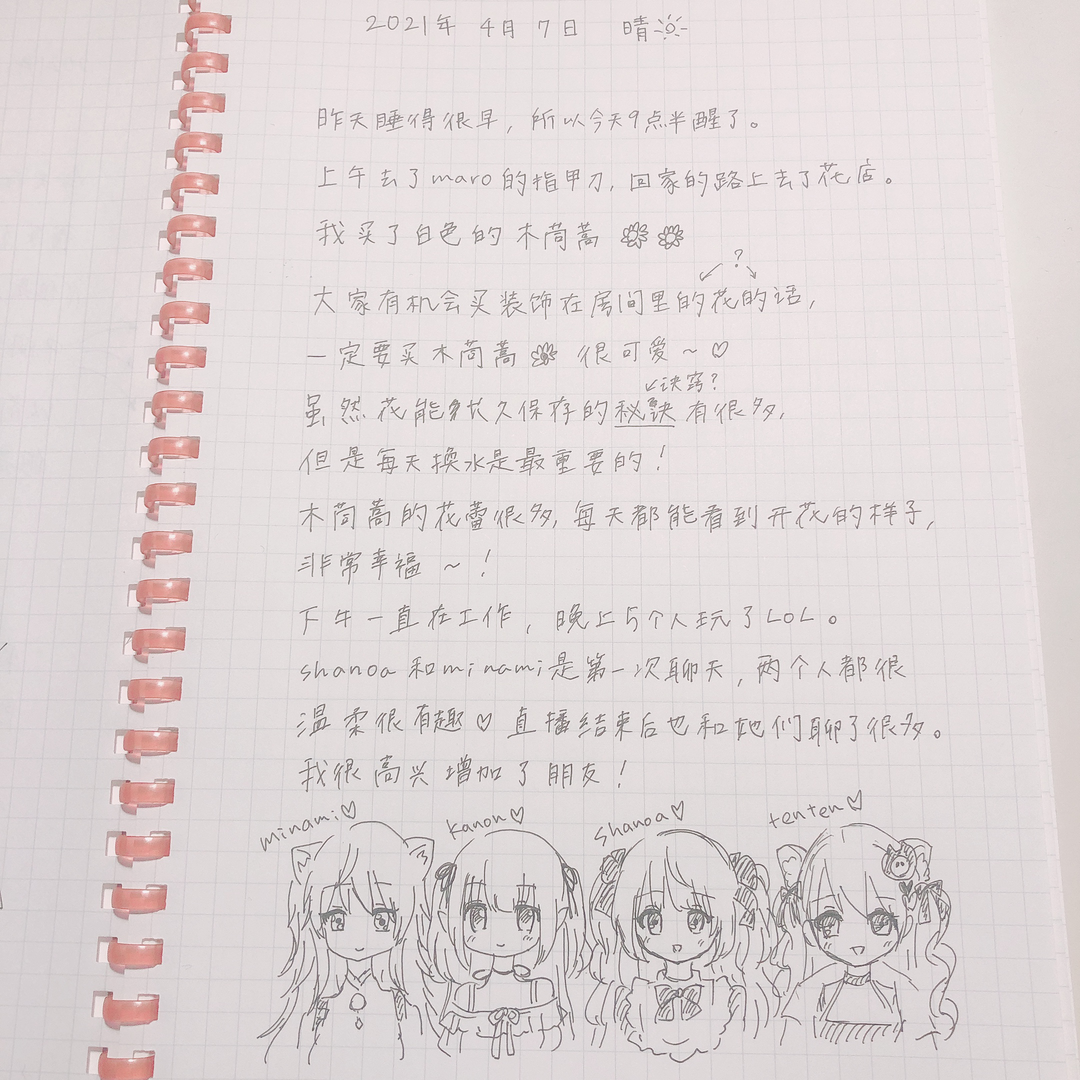 2021年 4月 7日 晴
昨天睡得很早，所以今天9点半醒了。
上午去了maro的指甲刀，回家的路上去了花店。
我买了白色的木茼蒿
?
大家有机会买装饰在房间里的花的话，
一定要买木茼蒿 很可爱～♡
↙诀窍？
虽然花能长久保存的秘诀有很多，
但是每天换水是最重要的！
木茼蒿的花蕾很多，每天都能看到开花的样子，
非常幸福～！
下午一直在工作，晚上5个人玩了LOL。
shanoa和minami是第一次聊天，两个人都很
温柔很有趣♡直播结束后也和她们聊了很多。
我很高兴增加了朋友！
minami♡ kanon♡ shanoa♡ tenten♡